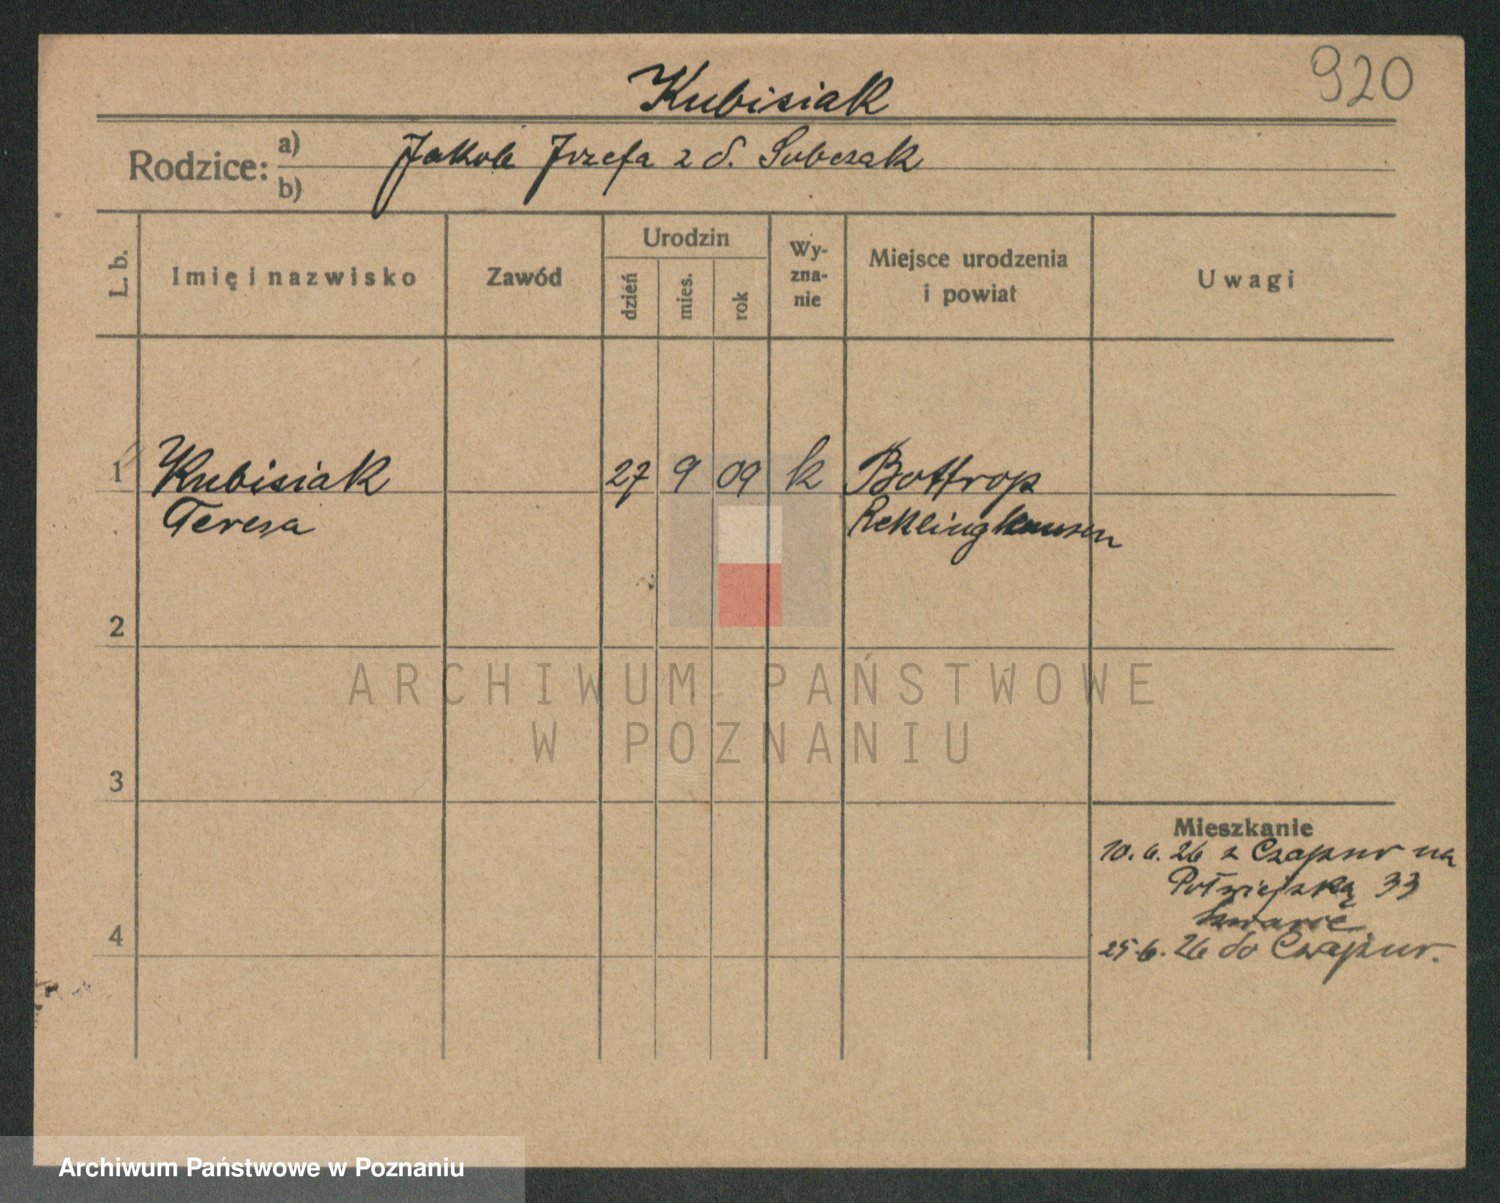 920
Kubisiak
Rodzice: a) Jakob Józefa z d. Sobczak
b)
L. b.
Imię i nazwisko
Zawód
Urodzin
dzień
mies.
rok
Wy-
zna-
nie
Miejsce urodzenia
i powiat
Uwagi
1 Kubisiak 27 9 09 k Bottrop
Teresa Reklinghausen
2
ARCHIWUM PAŃSTWOWE
W POZNANIU
3
4
Mieszkanie
10.6.26 z Czapur na
Półwiejską 33
25.6.26 do Czapur.
Archiwum Państwowe w Poznaniu